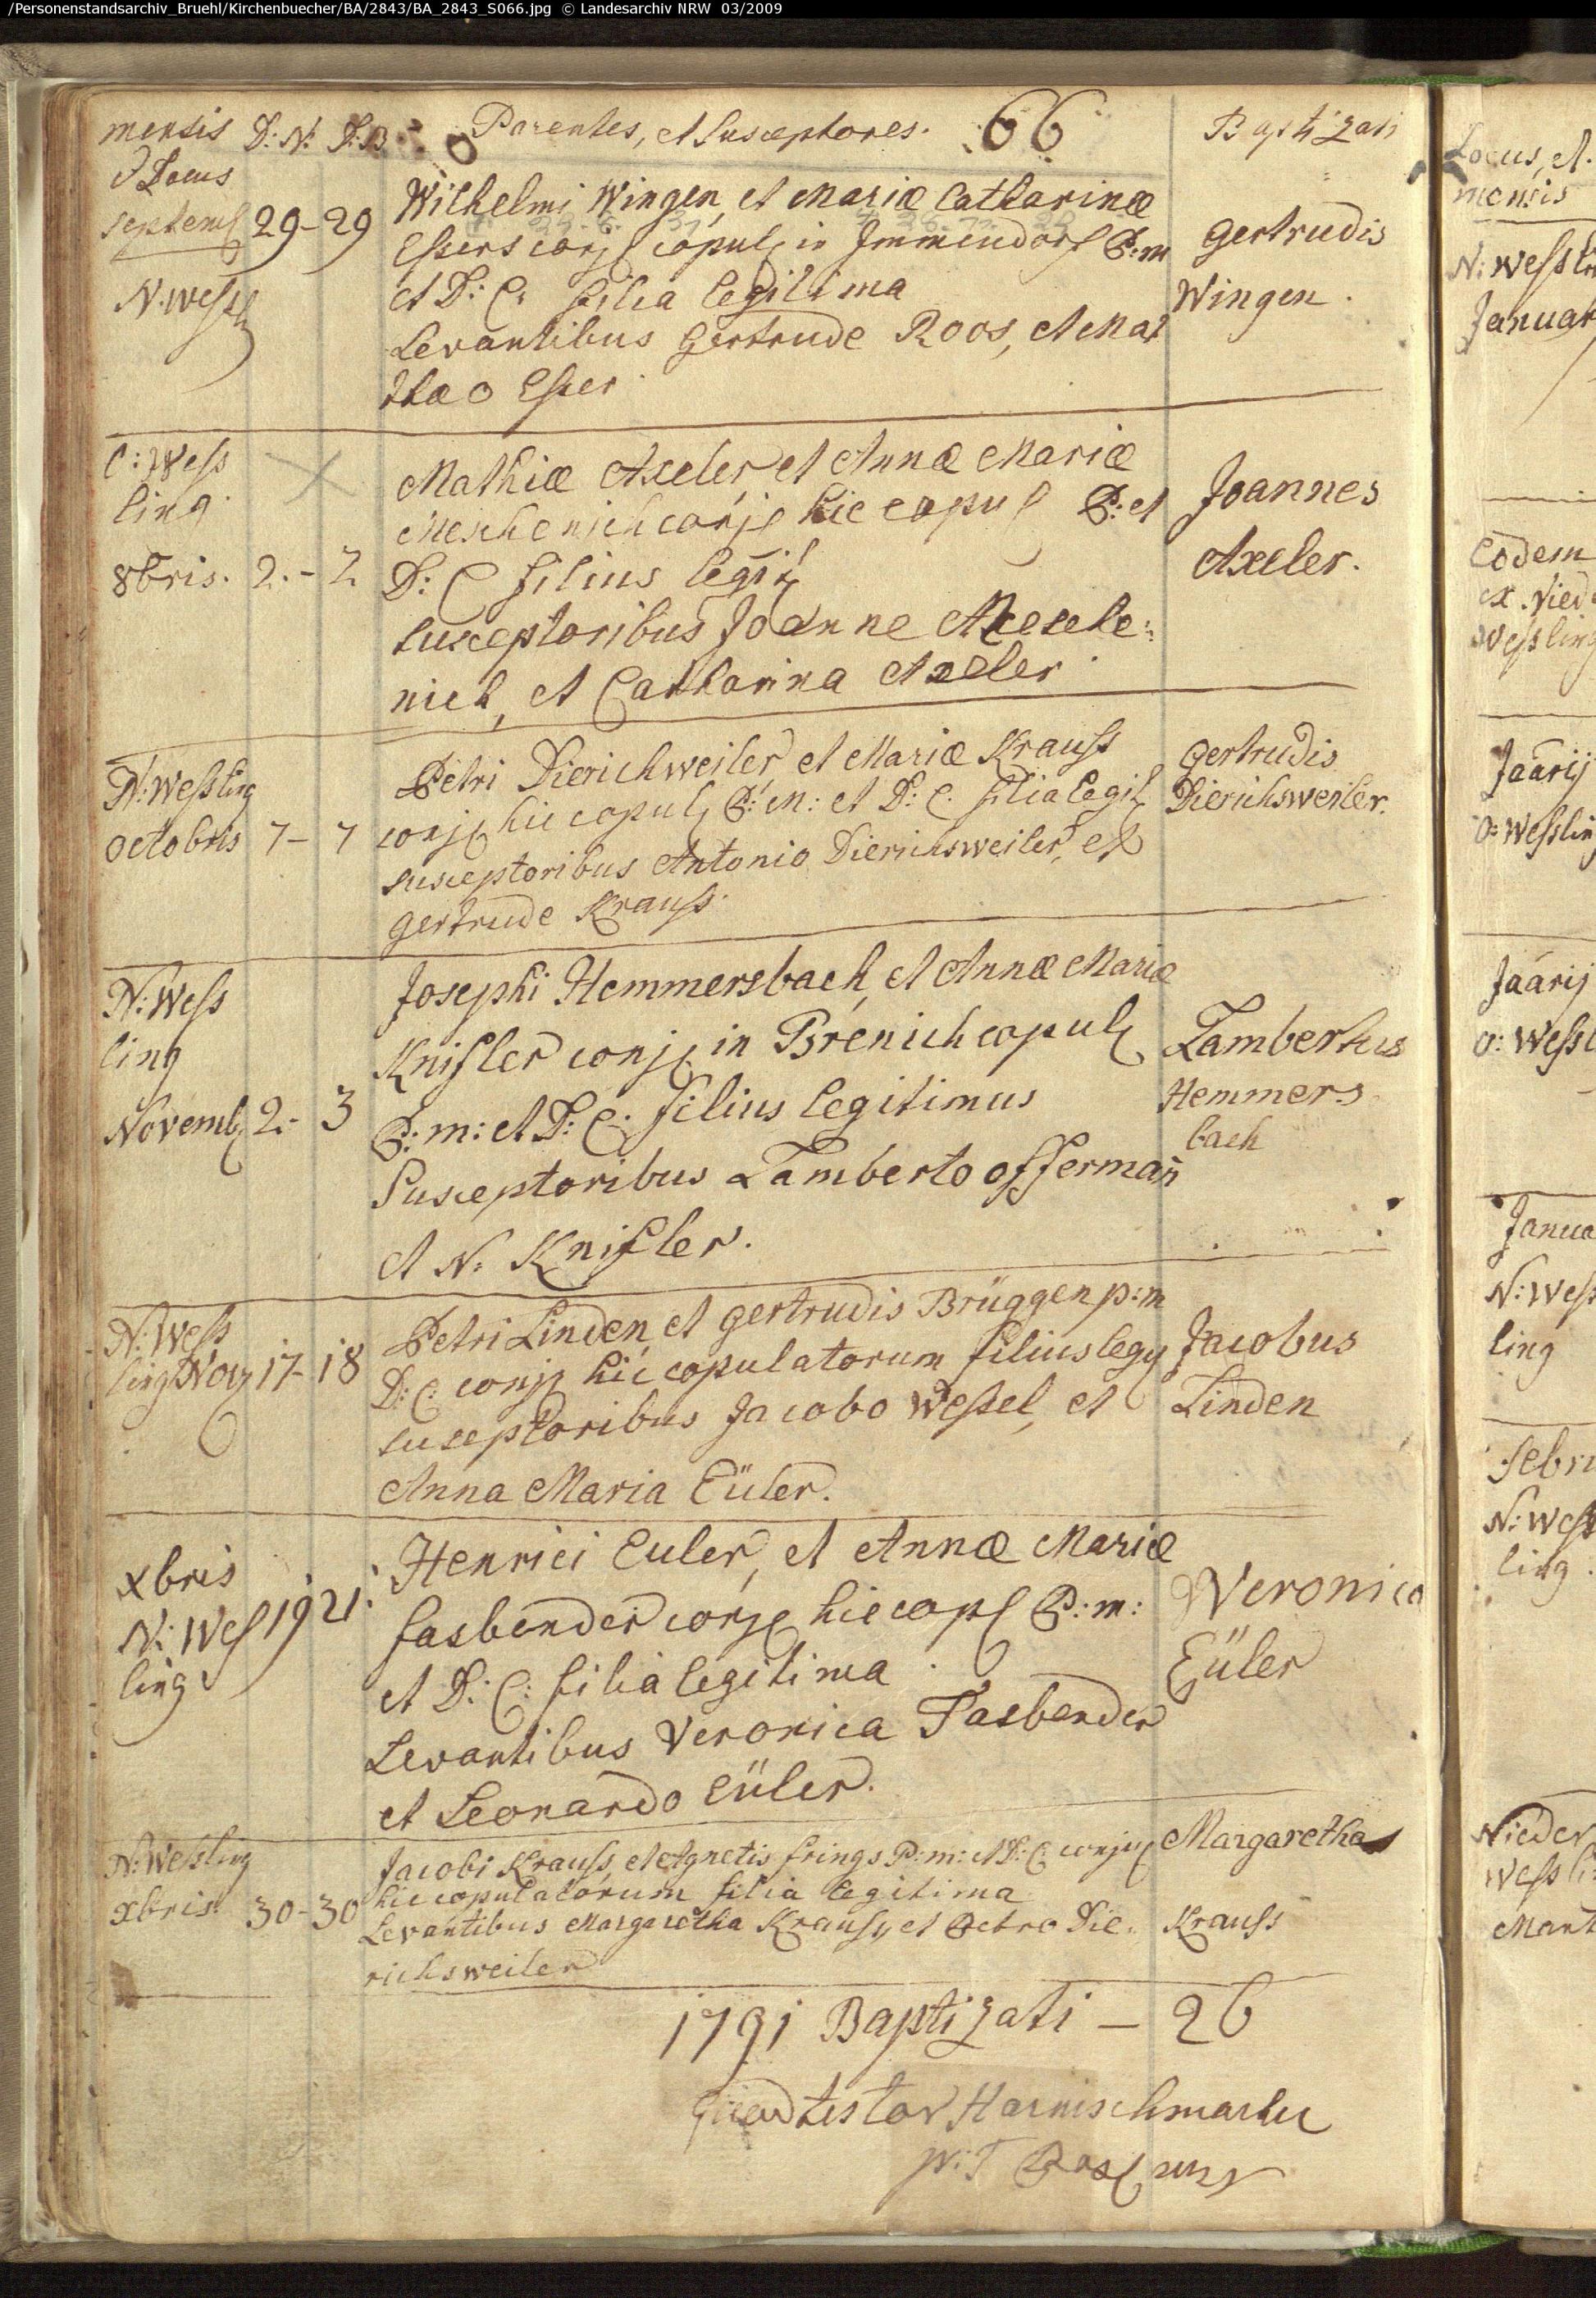 /Personenstandsarchiv_Bruehl/Kirchenbuecher/BA/2843/BA_2843_S066.jpg © Landesarchiv NRW 03/2009
mensis D: N: D: B Parentes, et Susceptores. 66 Baptizati
Locus
septemb 29-29 Wilhelmi Wingen, et Mariæ Catharinæ
Essers conj copul in Immendorf P:m Gertrudis
N:wessl et D: C: filia legitima Wingen.
Levantibus Gertrude Roos, et Mat
thæo Esser
O: Wess
ling. Mathiæ Axeler, et Annæ Mariæ
Meschenich conj hic copul P: et Joannes
8bris. 2.-2 D: C filius legit Axeler.
susceptoribus Joanne Meche:
nich, et Catharina Axeler
N:Wessling Petri Dierichweiler, et Mariæ Krauss Gertrudis
octobris 7-7 conj hic copul P:M: et D: C. filia legit Dierichsweiler.
susceptoribus Antonio Dierichsweiler, et
Gertrude Krauss.
N:Wess Josephi Hemmersbach, et Annæ Mariæ
ling Knisler conj in Brenich copul Lambertus
Novemb 2.- 3 P:m: et D: C. filius legitimus Hemmers
bach
Susceptoribus Lamberto offerman̄
et N: Knisler.
N:Wess Petri Linden, et Gertrudis Brüggen p:m
ling Nov 17-18 D: C: conj hic copulatorum filius leg Jacobus
susceptoribus Jacobo Wessel, et Linden
Anna Maria Eüler.
xbris Henrici Euler, et Annæ Mariæ
N: Wes 19 21. fasbender conj hic cop P:m: Veronica
ling et D: C: filia legitima. Eüler
Levantibus Veronica Fasbender
et Leonardo Eüler.
N:Wessling Jacobi Krauss, et Agnetis frings P:m: et D: C: conju Margaretha
xbris. 30-30 hic copulatorum filia legitima
Levantibus Margaretha Krauss, et Petro Die: Krauss
richsweiler
1791 Baptizati - 26
quod testor Harnischmacher
Locus, et
mensis
N: Wesslin
Januar
Eodem
ex Nied
Wessling
Jaārij
O: Wesslin
Jaārij
O: Wessl
Janua
N:Wess
ling
febru
N:Wess
ling.
Nieder
Wessli
Mart